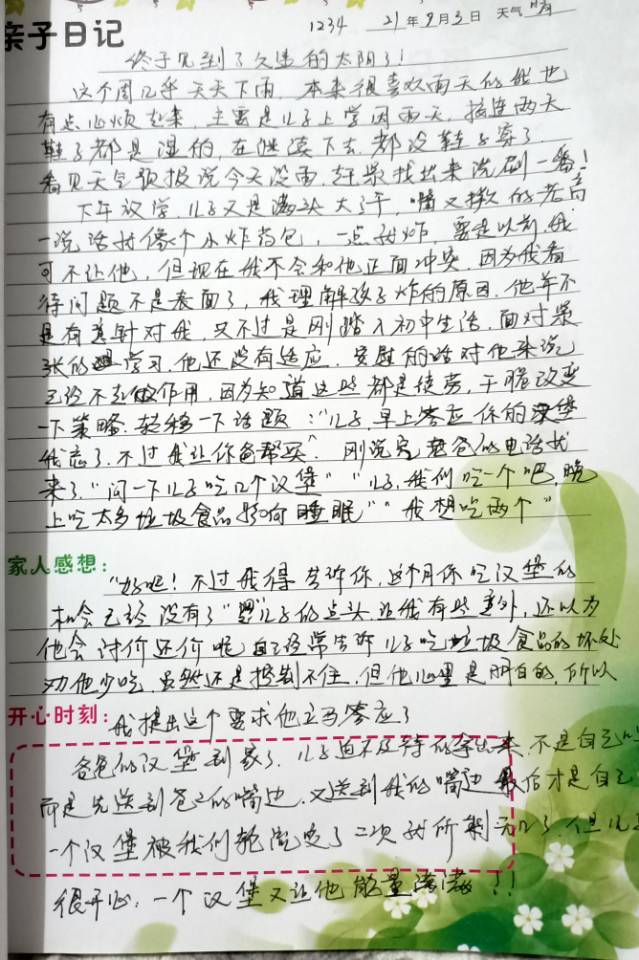 亲子日记
1234 21年9月3日 天气 晴
终于见到了久违的太阳了!
这个周几乎天天下雨,本来很喜欢雨天的我也
有点心烦起来,主要是儿子上学因雨天,接连两天
鞋子都是湿的,在继续下去都没鞋子穿了.
看见天气预报说今天没雨,赶紧找出来洗刷一番!
下午放学,儿子又是满头大汗,嘴又撅的老高
一说话就像个小炸药包,一点就炸,要是以前,我
可不让他,但现在我不会和他正面冲突.因为我看
得问题不是表面了,我理解孩子炸的原因.他并不
是有意针对我,只不过是刚踏入初中生活.面对紧
张的学习,他还没有适应,安慰的话对他来说
已经不起做作用,因为知道这些都是徒劳,干脆改变
一下策略.转移一下话题:"儿子,早上答应你的汉堡
我忘了,不过我让你爸帮买".刚说完爸爸的电话找
来了"问一下儿子吃几个汉堡""儿子,我们吃一个吧,晚
上吃太多垃圾食品影响睡眠""我想吃两个"
家人感想:
"好吧!不过我得告诉你,这个月你吃汉堡的
机会已经没有了"儿子的点头让我有些意外,还以为
他会讨价还价呢.自己经常告诉儿子吃垃圾食品的坏处
劝他少吃,虽然还是控制不住,但他心里是明白的,所以
开心时刻:
我提出这个要求他立马答应了
爸爸的汉堡到家了.儿子迫不及待的拿出来,不是自己吃
而是先送到爸爸的嘴边,又送到我的嘴边最后才是自己
一个汉堡被我们轮流咬了二次就所剩无几了,但儿子
很开心,一个汉堡又让他能量满满!!